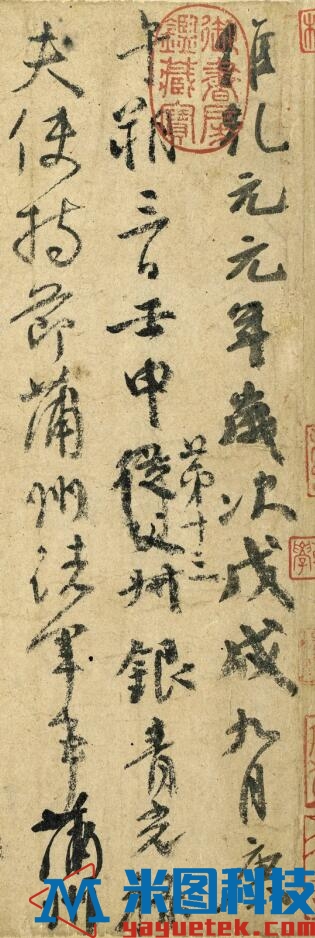 維乾元元年歲次戊戌九月庚
午朔三日壬申第十三從父叔銀青光祿
夫使持節蒲州諸軍事蒲州
御書房鑑藏寶
米图科技
yaguetek.com